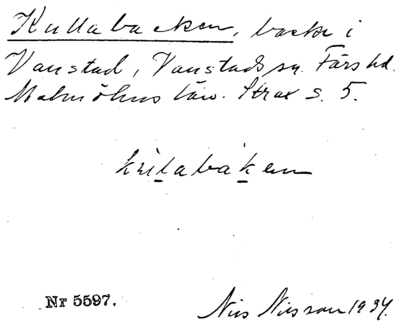 Kullabacken, backe i
Vanstad, Vanstads sn. Färs hd.
Malmöhus län. Strax s. 5.
Nr 5597.
Nils Nilsson 1934.